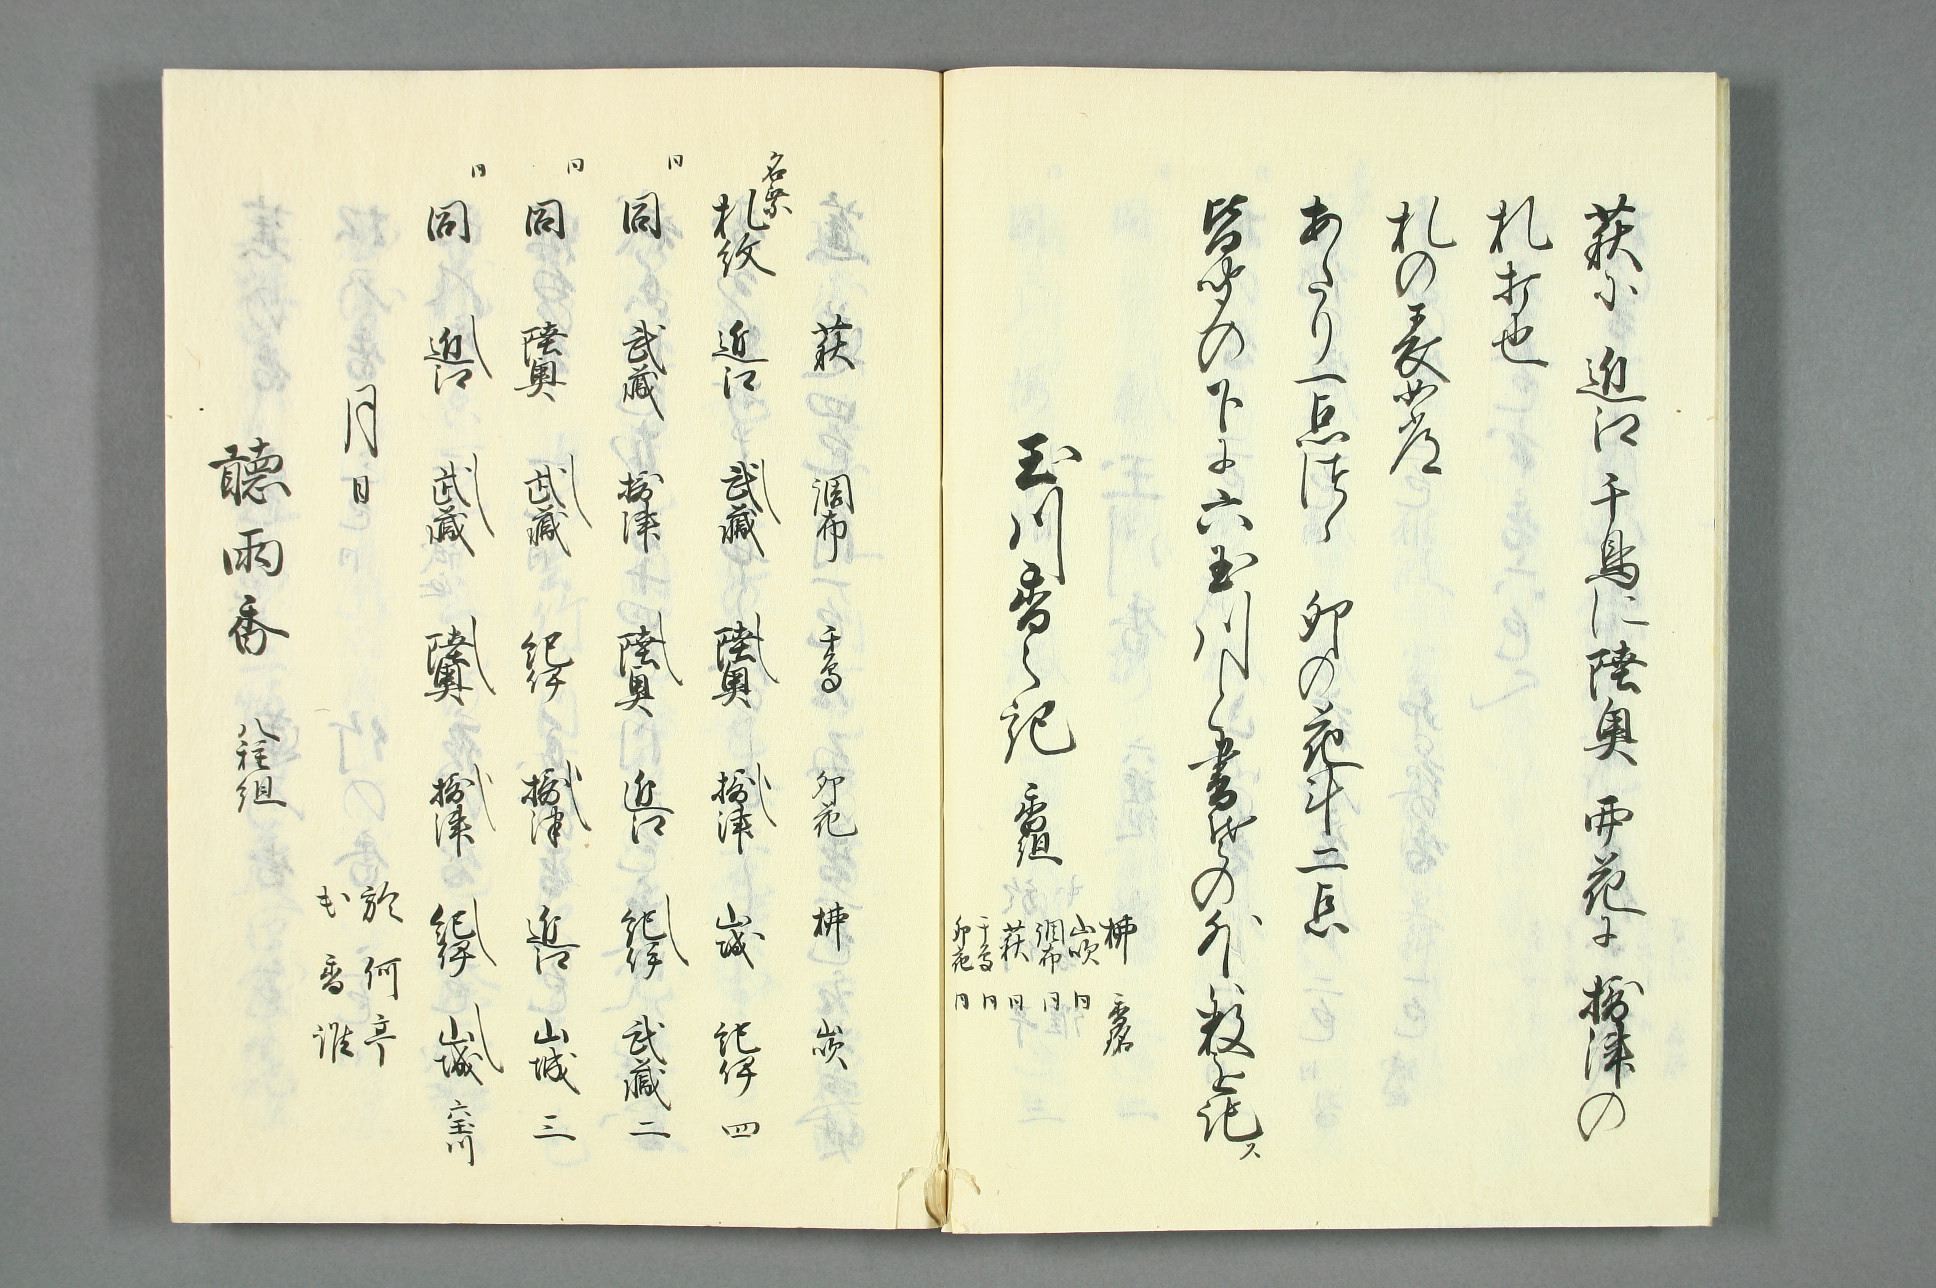 萩ニ 近江 千鳥に陸奥 卯花に摂津の
札打也
札の表如常
あたり一点宛 卯の花斗二点
皆中の下に六玉川と書其の外ハ数を記ス
玉川香之記 香組
柳 香銘
山吹 同
調布 同
萩 同
千鳥 同
卯花 同
萩 調布 千鳥 卯花 柳 山吹
名乗 札紋 近江 武蔵 陸奥 摂津 山城 紀伊 四
同 同 武蔵 摂津 陸奥 近江 紀伊 武蔵 二
同 同 陸奥 武蔵 紀伊 摂津 近江 山城 三
同 同 近江 武蔵 陸奥 摂津 紀伊 山城 六玉川
月 日
於 何 亭
出 香 誰
聴雨香 八種組